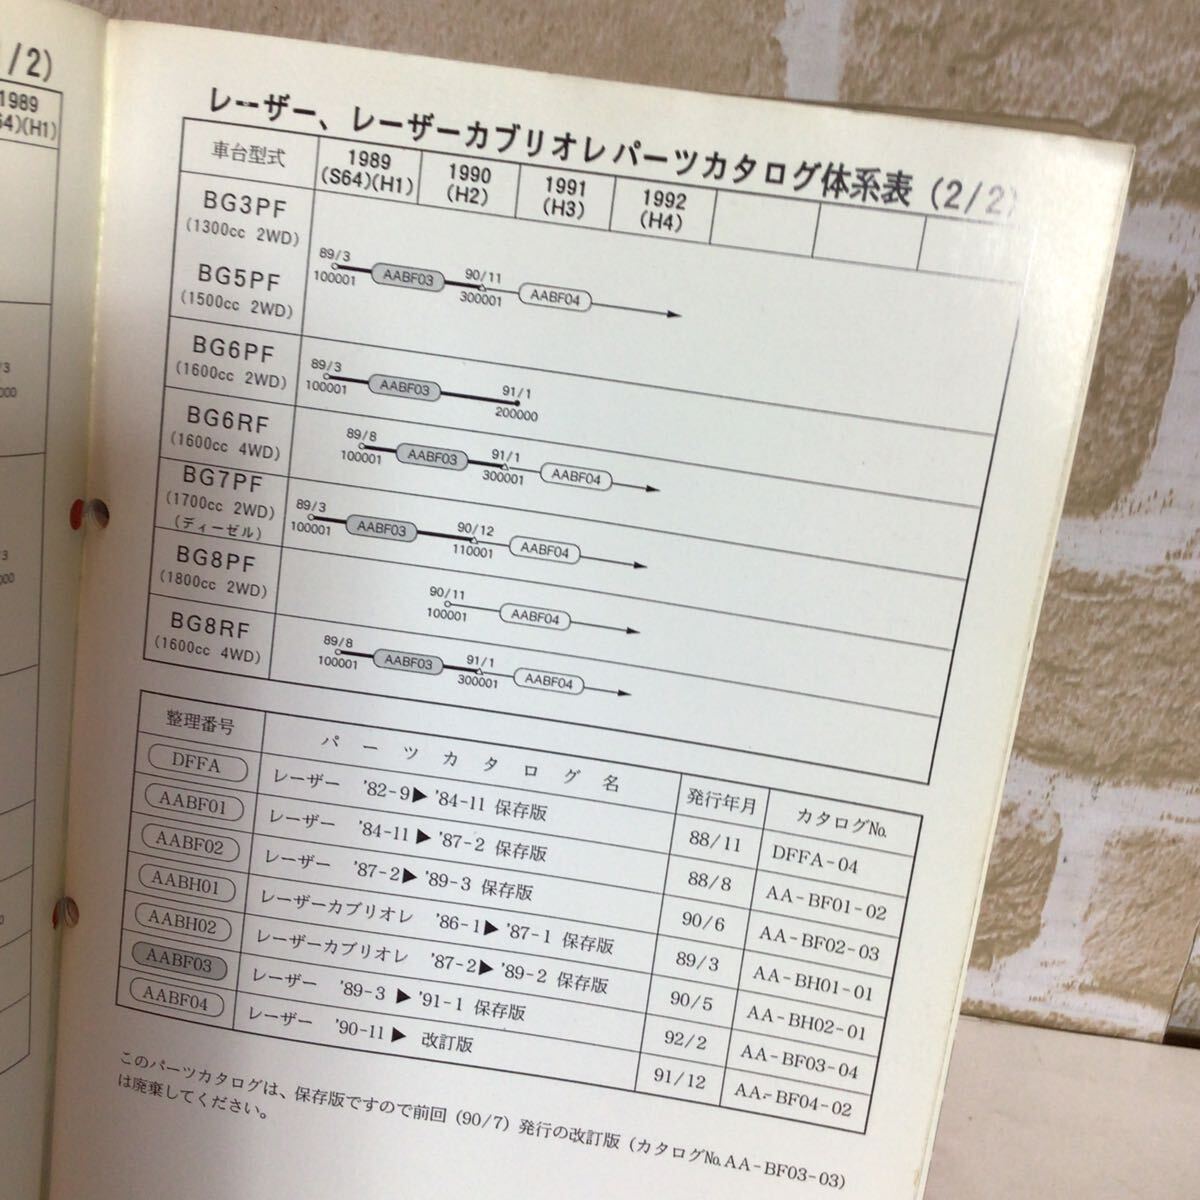 1/2)
1989
64)(H1)
レーザー、レーザーカブリオレパーツカタログ体系表 (2/2)
車台型式
1989
(S64)(H1)
1990
(H2)
1991
(H3)
1992
(H4)
BG3PF
(1300cc 2WD)
BG5PF
(1500cc 2WD)
89/3
100001
AABF03
90/11
300001
AABF04
BG6PF
(1600cc 2WD)
89/3
100001
AABF03
91/1
200000
BG6RF
(1600cc 4WD)
89/8
100001
AABF03
91/1
300001
AABF04
BG7PF
(1700cc 2WD)
(ディーゼル)
89/3
100001
AABF03
90/12
110001
AABF04
BG8PF
(1800cc 2WD)
90/11
100001
AABF04
BG8RF
(1600cc 4WD)
89/8
100001
AABF03
91/1
300001
AABF04
整理番号 パーツカタログ名 発行年月 カタログNo.
DFFA レーザー '82-9▶'84-11 保存版 88/11 DFFA-04
AABF01 レーザー '84-11▶'87-2 保存版 88/8 AA-BF01-02
AABF02 レーザー '87-2▶'89-3 保存版 90/6 AA-BF02-03
AABH01 レーザーカブリオレ '86-1▶'87-1 保存版 89/3 AA-BH01-01
AABH02 レーザーカブリオレ '87-2▶'89-2 保存版 90/5 AA-BH02-01
AABF03 レーザー '89-3▶'91-1 保存版 92/2 AA-BF03-04
AABF04 レーザー '90-11▶ 改訂版 91/12 AA-BF04-02
このパーツカタログは、保存版ですので前回 (90/7) 発行の改訂版 (カタログNo.AA-BF03-03)
は廃棄してください。